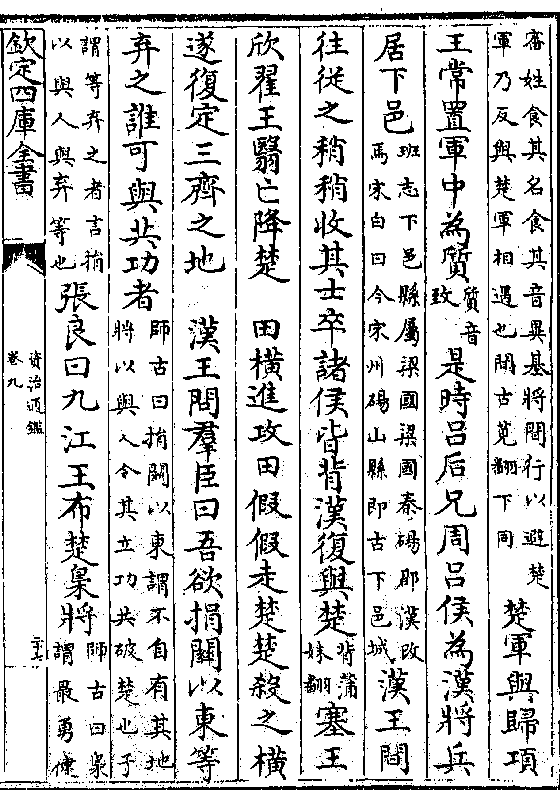 審姓食其名食其音異基將間行以避楚
軍乃反與楚軍相遇也間古莧翻下同
楚軍與歸項
王常置軍中為質
質音
致
是時吕后兄周吕侯為漢將兵
居下邑
班志下邑縣屬梁國梁國秦碭郡漢改
焉宋白曰今宋州碭山縣即古下邑城
漢王間
往從之稍稍收其士卒諸侯皆背漢復與楚
背蒲
妹翻
塞王
欣翟王翳亡降楚 田横進攻田假假走楚楚殺之横
遂復定三齊之地 漢王問羣臣曰吾欲捐關以東等
弃之誰可與共功者
師古曰捐關以東謂不自有其地
將以與人令其立功共破楚也予
謂等弃之者言捐
以與人與弃等也
張良曰九江王布楚梟將
師古曰梟
謂最勇健
欽定四庫全書
資治通鑑
卷九